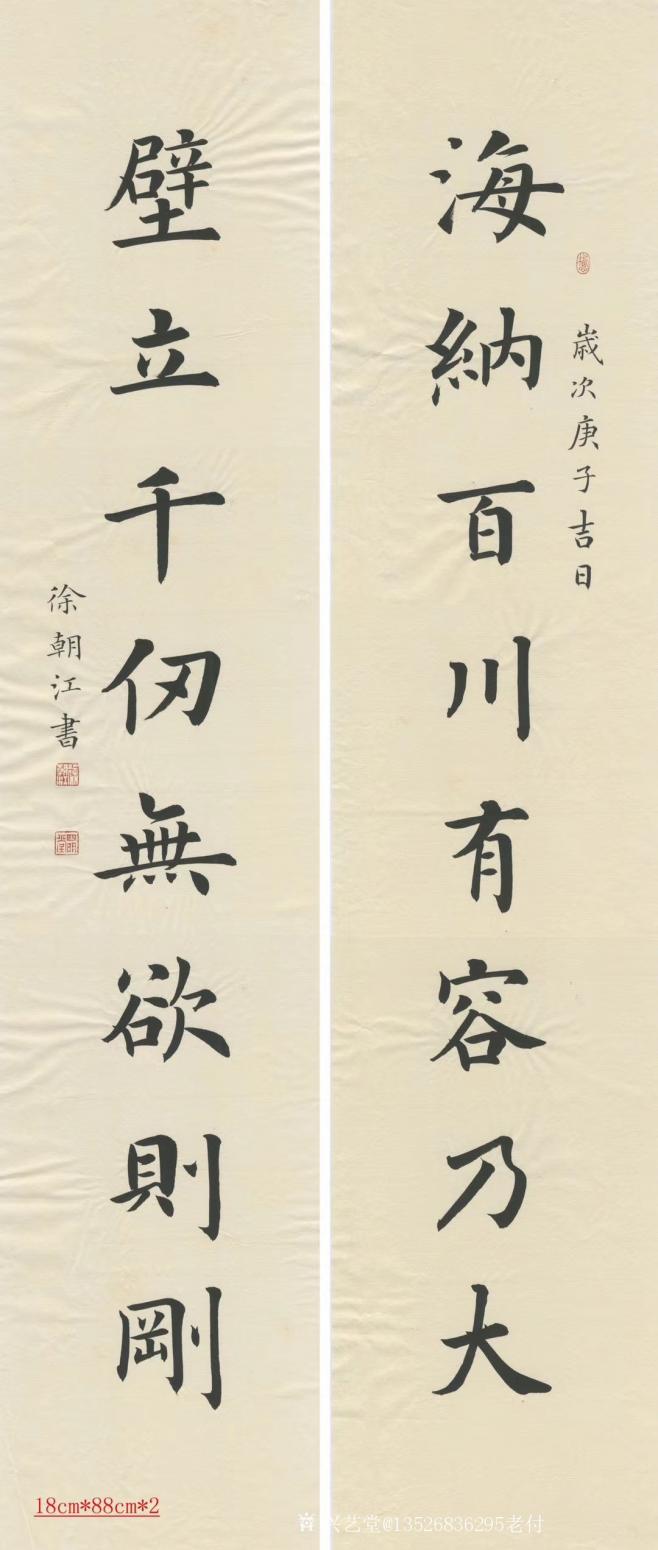 海納百川有容乃大
歲次庚子吉日
壁立千仞無欲則剛
徐朝江書
18cm*88cm*2
兴艺堂@13526836295老付